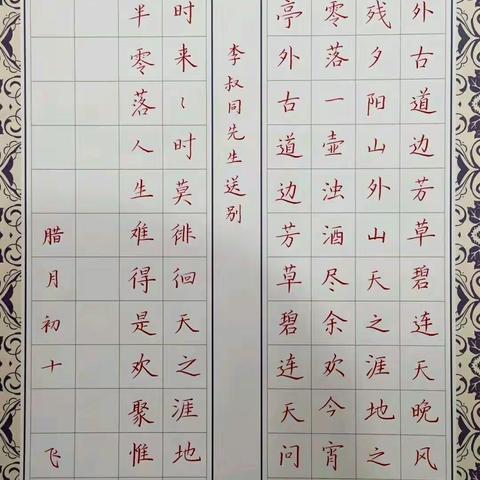 外古道边芳草碧连天晚风
残夕阳山外山天之涯地之
零落一壶浊酒尽余欢今宵
亭外古道边芳草碧连天问
李叔同先生送别
时来〻时莫徘徊天之涯地
半零落人生难得是欢聚惟
腊月初十 飞